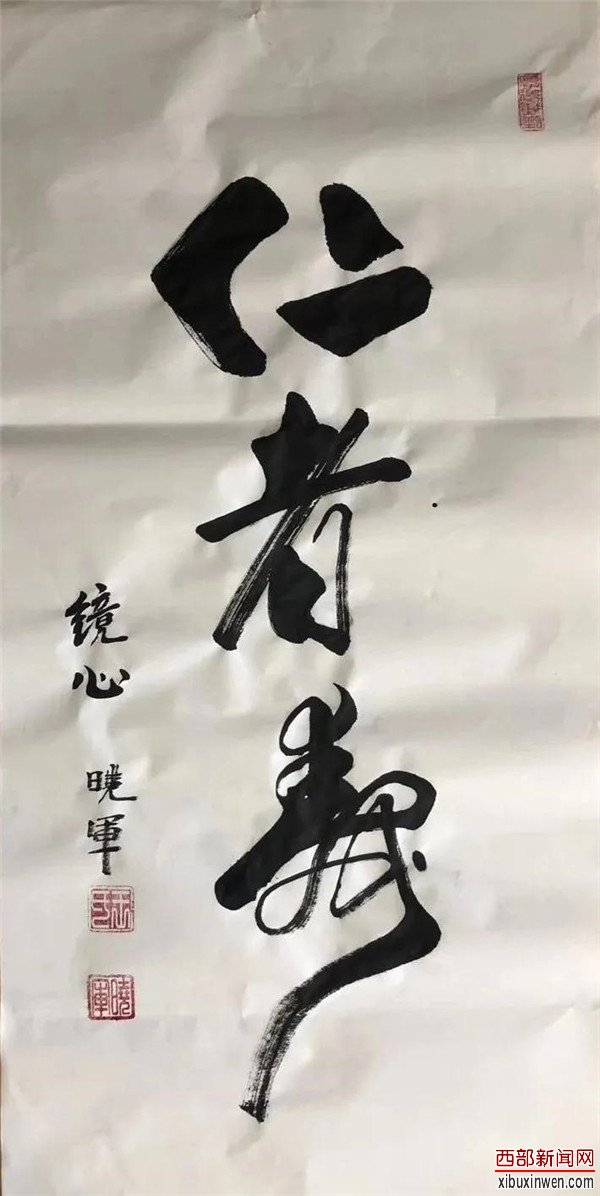 仁者壽
鏡心 曉軍
曉軍
西部新闻网
xibuxinwen.com